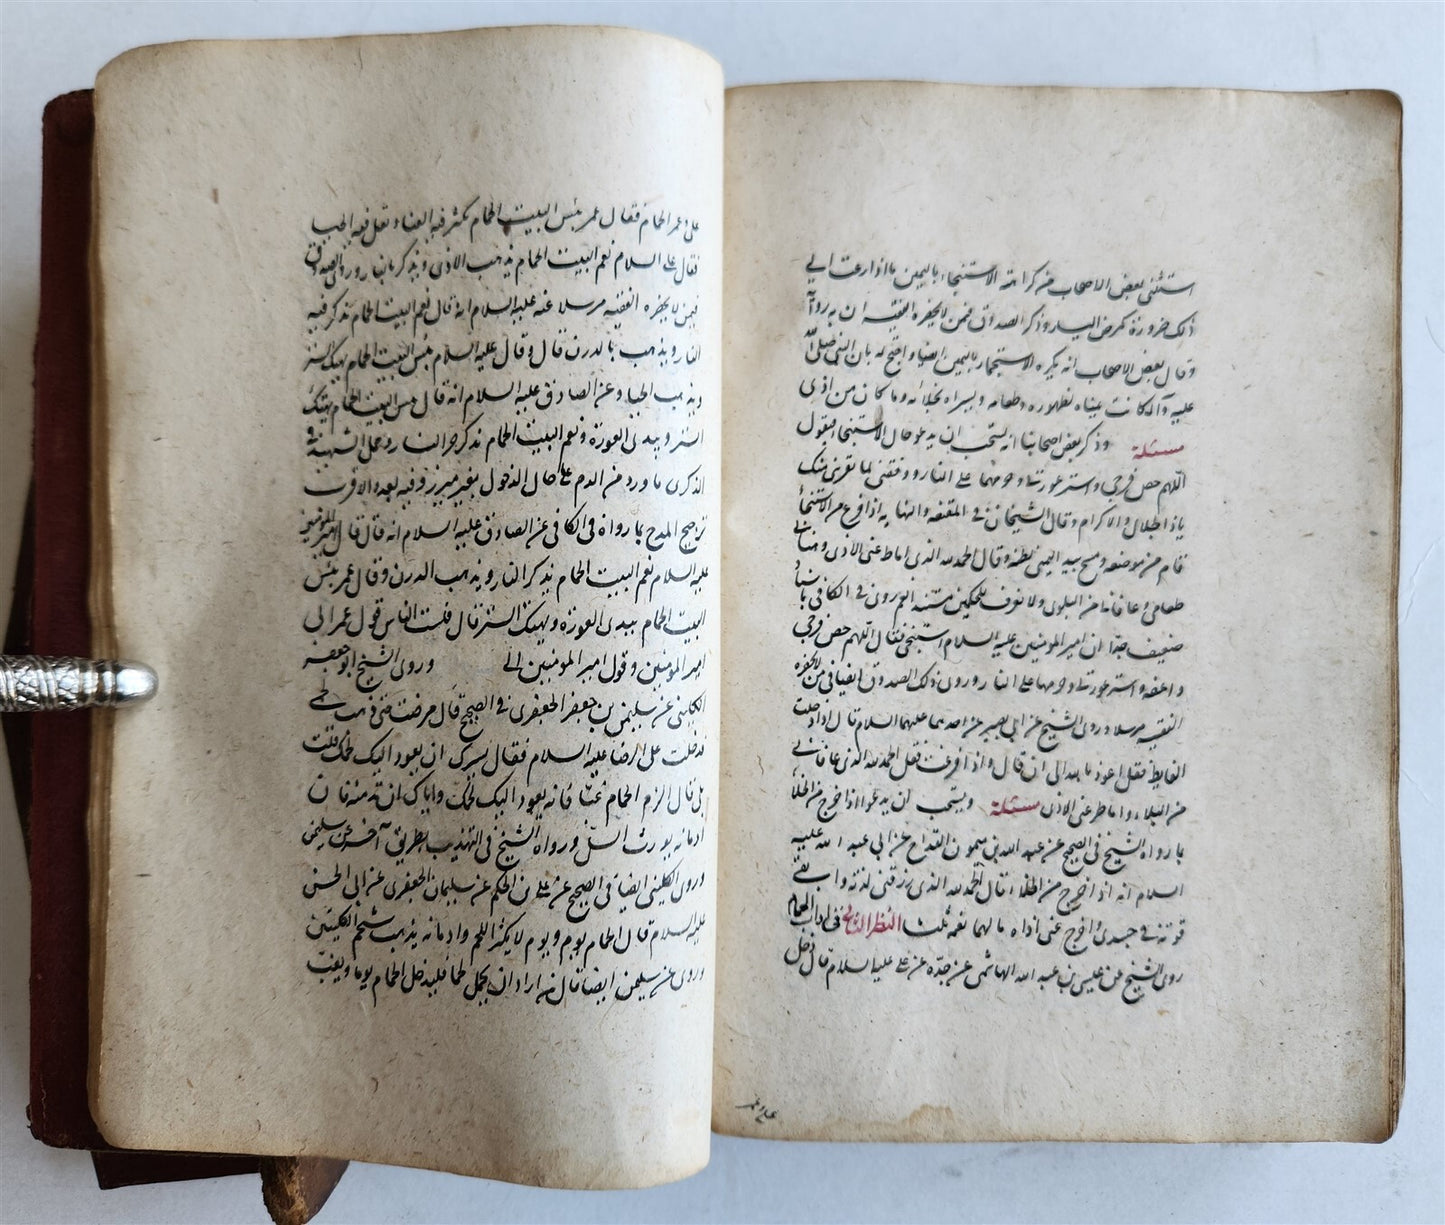 استثنى بعض الاصحاب من كراهة الاستنجاء باليمين ما اذا دعت الى
ذلك ضرورة كمرض اليسار وذكر الصدوق فى من لا يحضره الفقيه ان به رواية
وقال بعض الاصحاب انه يكره الاستجمار باليمين ايضا واحتج له بان النبى صلى الله
عليه وآله كانت يمناه لطهوره وطعامه ويسراه لخلائه وما كان من اذى
مسئلة وذكر بعض اصحابنا انه يستحب ان يدعو حال الاستنجاء فيقول
اللهم حصن فرجى واستر عورتى وحرمهما على النار ووفقنى لما تقربنى منك
ياذا الجلال والاكرام وقال الشيخان فى المقنعة والنهاية اذا فرغ من الاستنجاء
قام من موضعه ومسح بيده اليمنى بطنه وقال الحمد لله الذى اماط عنى الاذى وهنانى
طعامى وعافانى من البلوى ولا نعرف للحكمين مستندا نعم روى فى الكافى باسناد
ضعيف جدا ان امير المؤمنين عليه السلام استنجى فقال اللهم حصن فرجى
واعفه واستر عورتى وحرمها على النار وروى ذلك الصدوق ايضا فى من لا يحضره
الفقيه مرسلا وروى الشيخ عن ابى بصير عن احدهما عليهما السلام قال اذا دخلت
الغايط فقل اعوذ بالله الى ان قال واذا فرغت فقل الحمد لله الذى عافانى
من البلاء واماط عنى الاذى مسئلة ويستحب ان يدعو اذا خرج من الخلاء
بما رواه الشيخ فى الصحيح عن عبد الله بن ميمون القداح عن ابى عبد الله عليه
السلام انه اذا خرج من الخلاء قال الحمد لله الذى رزقنى لذته وابقى
قوته فى جسدى واخرج عنى اذاه يالها نعمة ثلثا النظر الثانى فى اداب الحمام
روى الشيخ عن عيسى بن عبد الله الهاشمى عن جده عن على عليه السلام قال دخل
على وعمر
على وعمر الحمام فقال عمر بئس البيت الحمام يكثر فيه العناء ويقل فيه الحيا
فقال على السلام نعم البيت الحمام يذهب الاذى ويذكر بالنار وروى الصدوق
فى من لا يحضره الفقيه مرسلا عنه عليه السلام انه قال نعم البيت الحمام تذكر فيه
النار ويذهب بالدرن قال وقال عليه السلام بئس البيت الحمام يهتك الستر
ويذهب الحيا وعن الصادق عليه السلام انه قال بئس البيت الحمام يهتك
الستر ويبدى العورة ونعم البيت الحمام تذكر حر النار وحمل الشهيد فى
الذكرى ما ورد من الذم على حال الدخول بغير ميزر وفيه بعد والاقرب
ترجيح المدح بما رواه فى الكافى عن الصادق عليه السلام انه قال قال امير المؤمنين
عليه السلام نعم البيت الحمام يذكر النار ويذهب الدرن وقال عمر بئس
البيت الحمام يبدى العورة ويهتك الستر قال فنسب الناس قول عمر الى
امير المؤمنين وقول امير المؤمنين الى وروى الشيخ ابو جعفر
الكلينى عن سليمن بن جعفر الجعفرى فى الصحيح قال مرضت حتى ذهب لحمى
فدخلت على الرضا عليه السلام فقال يسرك ان يعود اليك لحمك فقلت
بلى قال الزم الحمام غبا فانه يعود اليك لحمك واياك ان تدمنه فان
ادمانه يورث السل ورواه الشيخ فى التهذيب بطريق آخر عن سليمن
وروى الكلينى ايضا فى الصحيح عن على بن الحكم عن سليمان الجعفرى عن ابى الحسن
عليه السلام قال الحمام يوم ويوم لا يكثر اللحم وادمانه يذهب شحم الكليتين
وروى عن سليمن ايضا قال من اراد ان يحمل لحما فليدخل الحمام يوما ويغب